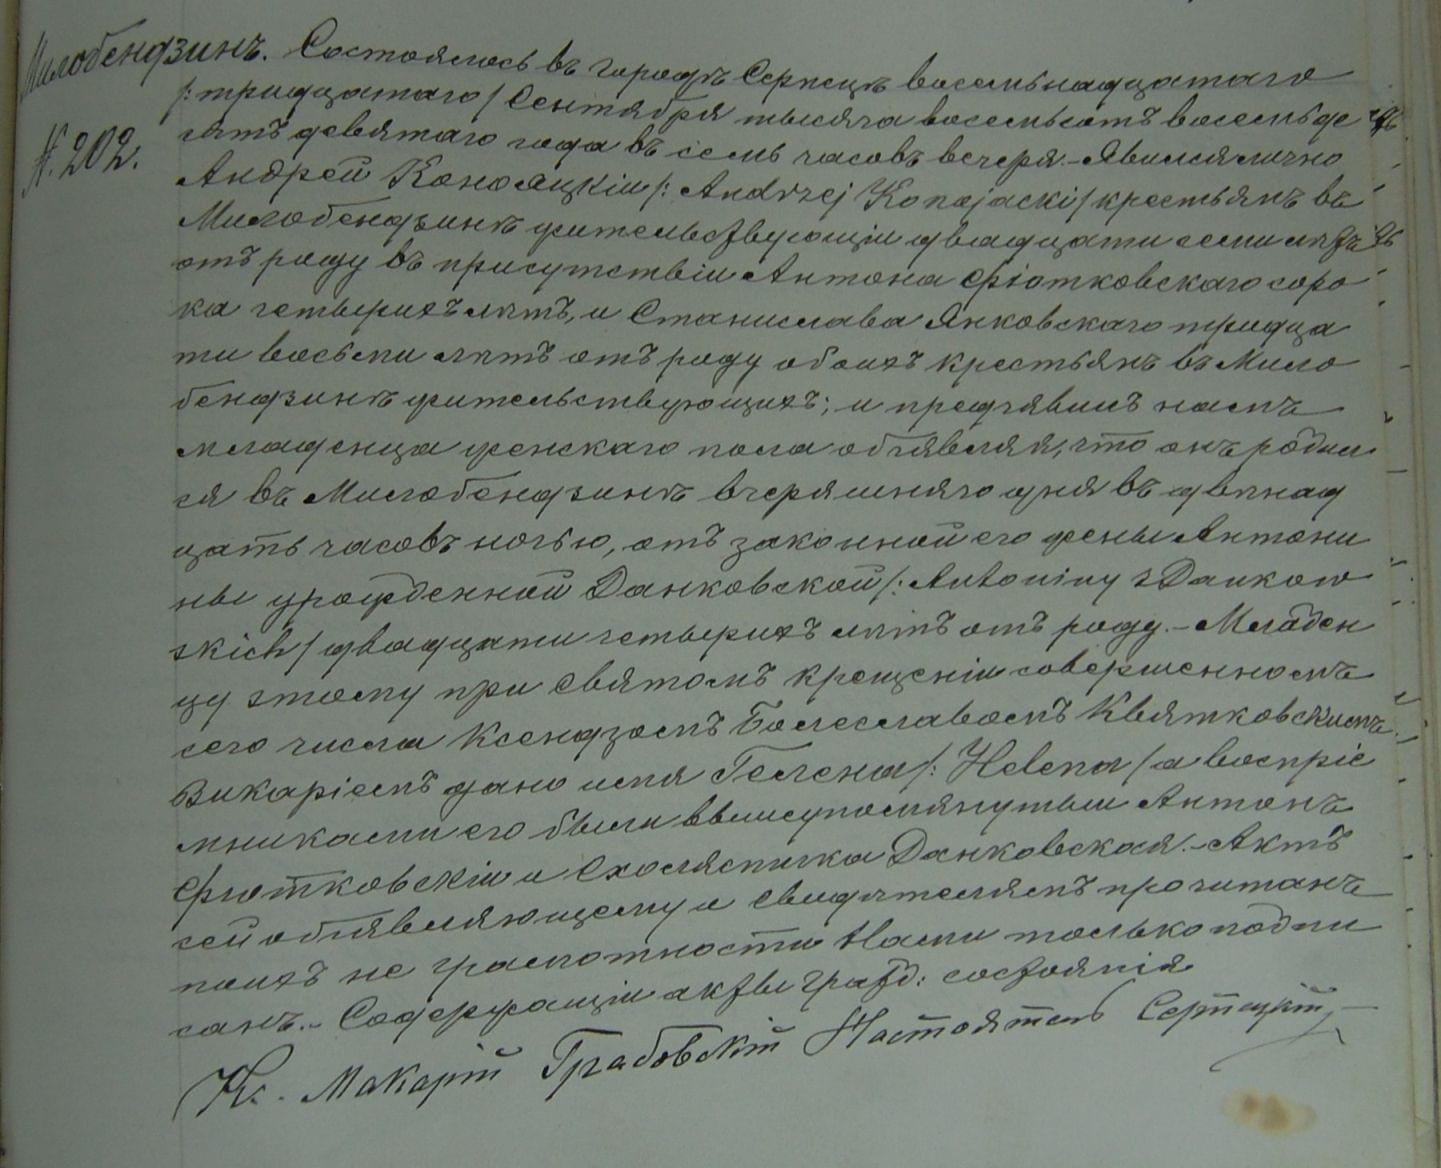 Милобендзинъ. Состоялось въ городѣ Серпецѣ восемьнадцатаго
/:тридцатаго/ Сентября тысяча восемьсотъ восемьде
N. 202.
сятъ девятаго года въ семь часовъ вечера. - Явился лично
Андрей Конояцкій /: Andrzej Konojacki / крестьянъ въ
Милобендзинѣ жительствующій двадцати семи лѣтъ
отъ роду въ присутствіи Антона Фіотковскаго соро
ка четырехъ лѣтъ, и Станислава Янковскаго тридца
ти восьми лѣтъ отъ роду обоихъ крестьянъ въ Мило
бендзинѣ жительствующихъ; и предъявилъ намъ
младенца женскаго пола объявляя, что онъ родил
ся въ Милобендзинѣ вчерашняго дня въ двѣнад
цать часовъ ночью, отъ законной его жены Антони
ны урожденной Данковской /: Antoniny z Dankow
skich / двадцати четырехъ лѣтъ отъ роду. - Младен
цу этому при Святомъ крещеніи совершенномъ
сего числа Ксендзомъ Болеславомъ Квятковскимъ
Викаріемъ дано имя Гелена /: Helena / а воспріе
мниками его были вышеупомянутый Антонъ
Фіотковскій и Схолястика Данковская. - Актъ
сей объявляющему и свидѣтелямъ прочитанъ
поихъ не грамотности Нами только подпи
санъ. - Содержащій акты гражд: состоянія
Кс. Макарій Грабовскій Настоятель Серпецкій